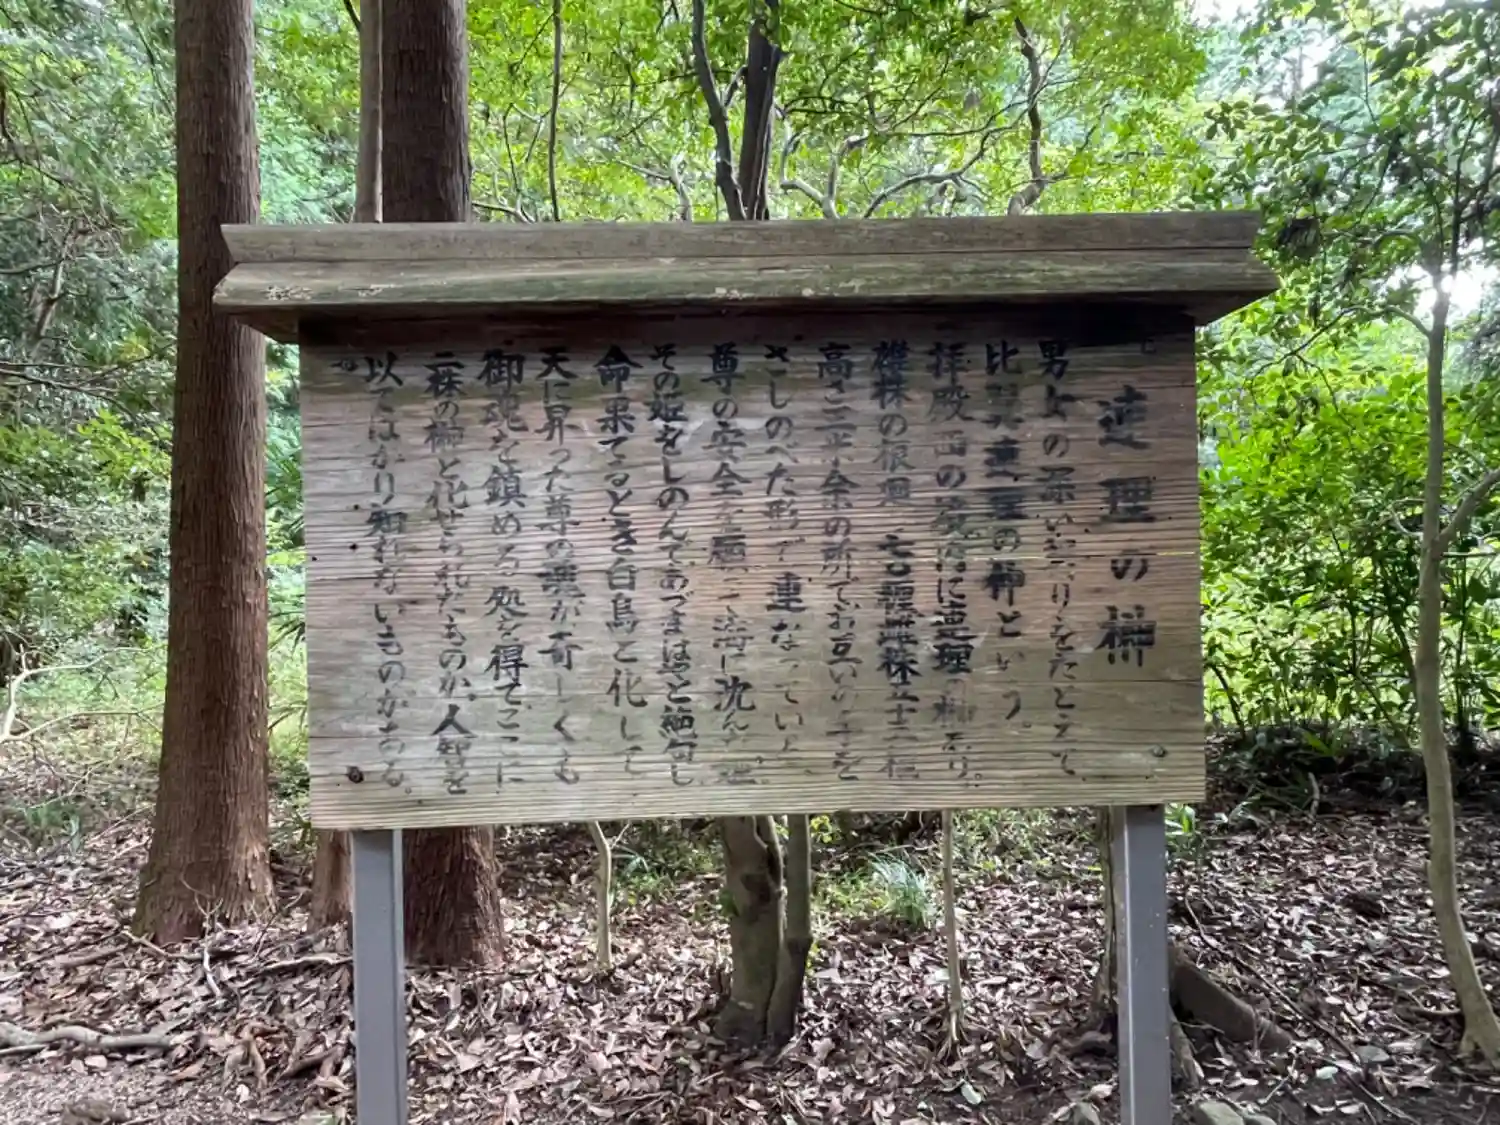 連理の榊
男女の深いちぎりをたとえて
比翼連理の枠という。
拝殿西の瑞に連理の榊あり。
雄株の根廻 七〇糎雌株五十二糎
高さ三米余の所でお互いの手を
さしのべた形で連なっている
尊の安全を願って海に沈んだ姫
その姫をしのんであづまはやと絶句し
命果てるとき白鳥と化して
天に昇った尊の魂が奇しくも
御魂を鎮める処を得てここに
二株の榊と化せられたものか。人智を
以てはかり知れないものがある。